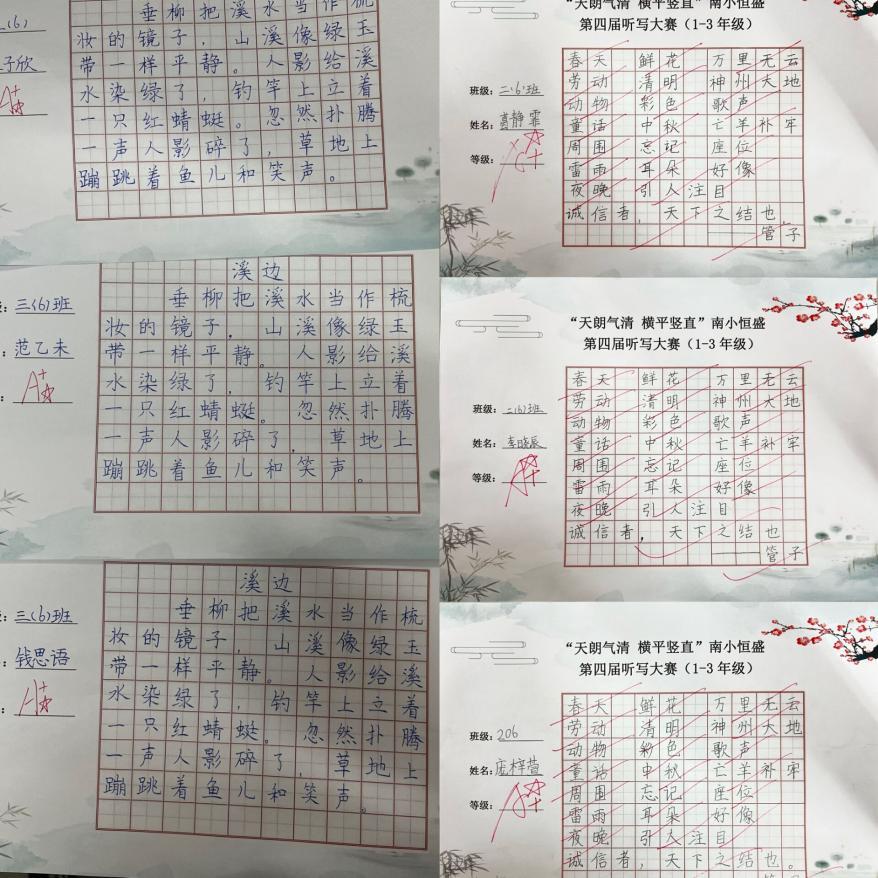 (6)
子欣
A+
垂柳把溪水当作梳
妆的镜子，山溪像绿玉
带一样平静。人影给溪
水染绿了，钓竿上立着
一只红蜻蜓。忽然扑腾
一声人影碎了，草地上
蹦跳着鱼儿和笑声。
三(6)班
范乙未
A+
溪边
垂柳把溪水当作梳
妆的镜子，山溪像绿玉
带一样平静。人影给溪
水染绿了，钓竿上立着
一只红蜻蜓。忽然扑腾
一声人影碎了，草地上
蹦跳着鱼儿和笑声。
三(6)班
钱思语
A+
溪边
垂柳把溪水当作梳
妆的镜子，山溪像绿玉
带一样平静。人影给溪
水染绿了，钓竿上立着
一只红蜻蜓。忽然扑腾
一声人影碎了，草地上
蹦跳着鱼儿和笑声。
“天朗气清 横平竖直”南小恒盛
第四届听写大赛（1-3年级）
班级：二(6)班
姓名：高静霏
等级：A+
春天 鲜花 万里无云
劳动 清明 神州大地
动物 彩色 歌声
童话 中秋 亡羊补牢
周围 忘记 座位
雷雨 耳朵 好像
夜晚 引人注目
诚信者，天下之结也。
——管子
“天朗气清 横平竖直”南小恒盛
第四届听写大赛（1-3年级）
班级：二(6)班
姓名：李晓辰
等级：A+
春天 鲜花 万里无云
劳动 清明 神州大地
动物 彩色 歌声
童话 中秋 亡羊补牢
周围 忘记 座位
雷雨 耳朵 好像
夜晚 引人注目
诚信者，天下之结也
——管子
“天朗气清 横平竖直”南小恒盛
第四届听写大赛（1-3年级）
班级：206
姓名：庞梓萱
等级：A+
春天 鲜花 万里无云
劳动 清明 神州大地
动物 彩色 歌声
童话 中秋 亡羊补牢
周围 忘记 座位
雷雨 耳朵 好像
夜晚 引人注目
诚信者，天下之结也。